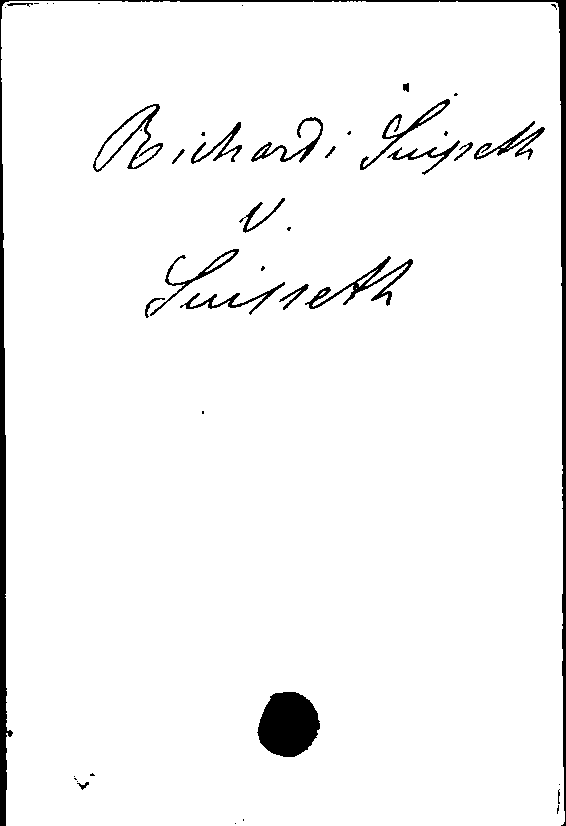 Richardi Suiseth
v.
Suisseth